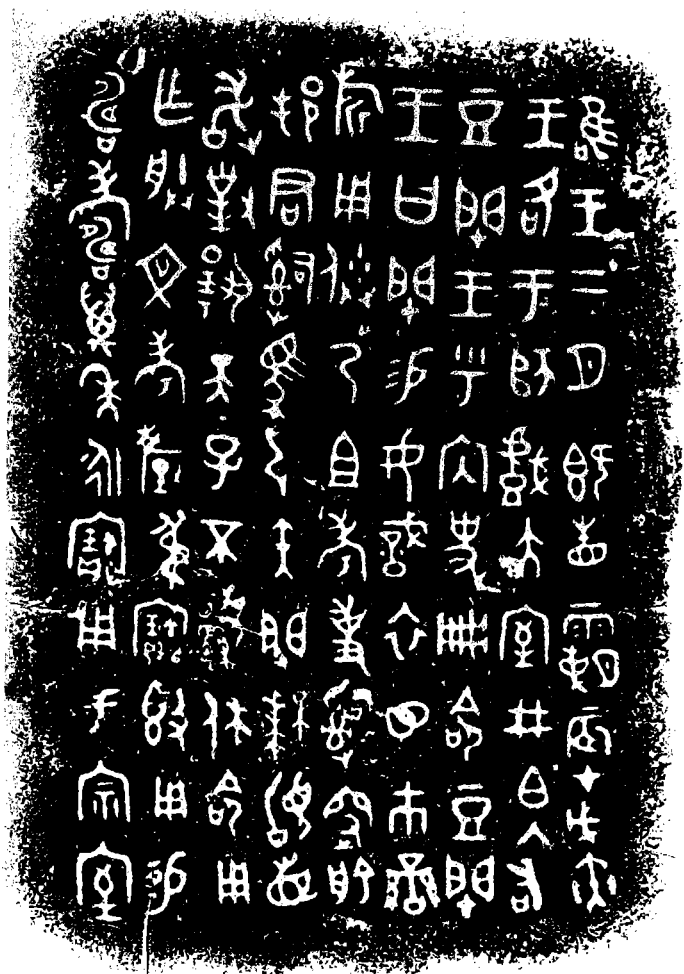 唯王二月既眚霸辰才戊寅
王各于師戲大室井白入右
豆閉王乎內史冊命豆閉
王曰閉易女戠衣⊙市鑾
旂用乃且考事𤔲𡨦艅
邦君𤔲馬弓矢閉拜𩒨首
敢對揚天子不顯休命用
乍朕文考釐叔寶𣪘用易
壽萬年永寶用于宗室